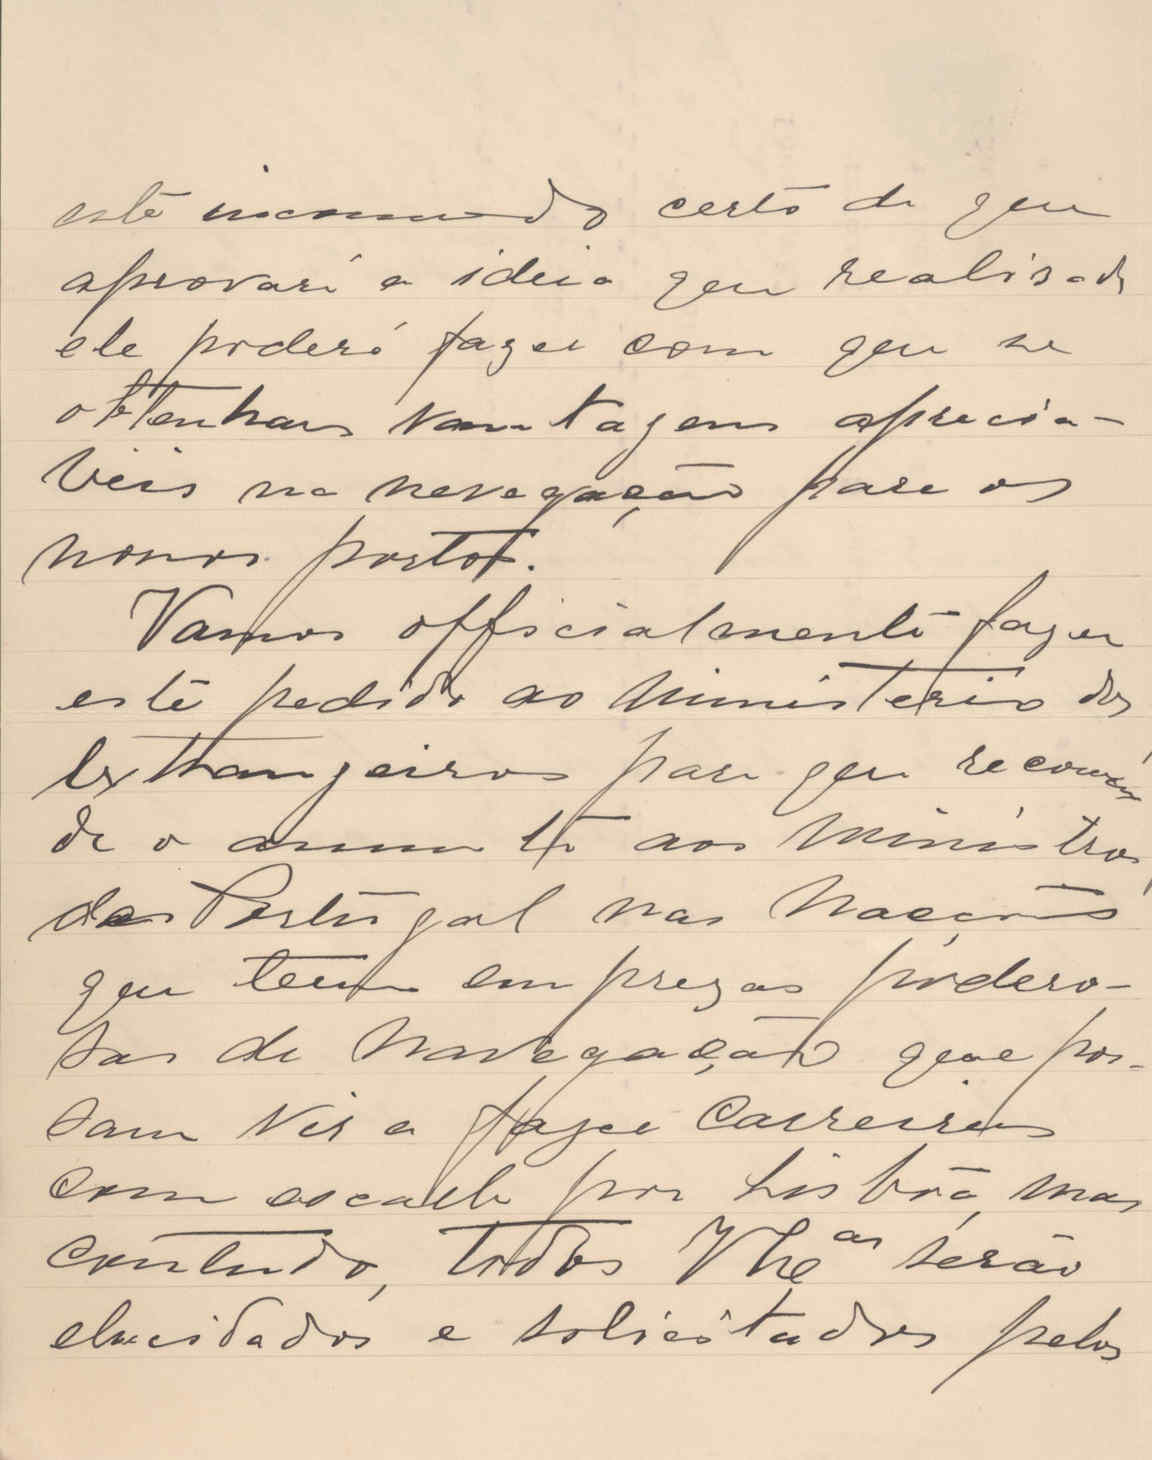 este incommodo certo de que
aprovará a ideia que realisada
ele poderá fazer com que se
obtenham vantagens aprecia-
veis na navegação para os
nossos portos.
Vamos officialmente fazer
este pedido ao Ministerio dos
Extrangeiros para que recomen
de o assumpto aos Ministros
de Portugal nas Nações
que teem emprezas podero-
sas de Navegação que pos-
sam vir a fazer carreiras
com escala por Lisbôa, mas
contudo, todos serão
elucidados e solicitados pelos